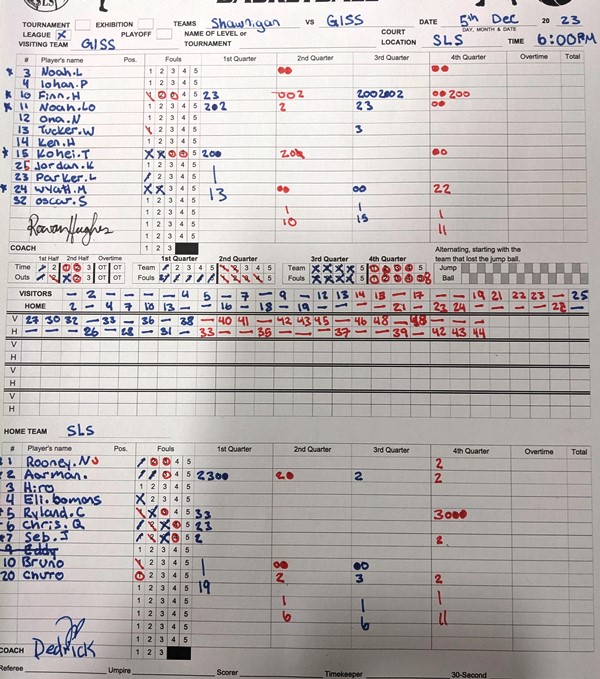 BASKETBALL
TOURNAMENT EXHIBITION TEAMS Shawnigan VS GISS DATE 5th Dec 20 23
LEAGUE X PLAYOFF NAME OF LEVEL or COURT DAY, MONTH & DATE
VISITING TEAM GISS TOURNAMENT LOCATION SLS TIME 6:00PM
# Player's name Pos. Fouls 1st Quarter 2nd Quarter 3rd Quarter 4th Quarter Overtime Total
3 Noah.L 1 2 3 4 5
4 Iohan.P 1 2 3 4 5
10 Finn.H 4 5 23 2002002 00200
11 Noah.Lo 1 2 3 4 5 202 2 23
12 Ona.N 1 2 3 4 5
13 Tucker.W 2 3 4 5 3
14 Ken.H 1 2 3 4 5
15 Kohei.T 5 200
25 Jordan.K 1 2 3 4 5
23 Parker.L 2 3 4 5
24 Wyatt.M 3 4 5 13 00 22
32 oscar.S 1 2 3 4 5
1 2 3 4 5 1 1 1
1 2 3 4 5 10 15 11
Rowan Hughes
COACH 1 2 3
Alternating, starting with the
team that lost the jump ball.
1st Half 2nd Half Overtime 1st Quarter 2nd Quarter 3rd Quarter 4th Quarter
Time OT OT Team Team Jump
Outs OT OT Fouls Fouls Ball
VISITORS - 2 - - - 4 5 - 7 - 9 - 12 13 14 15 - 17 - - 19 21 22 23 - 25
HOME 2 - 4 7 10 13 - - 16 - 18 - 19 - - - - 21 - 23 24 - - - - 22 -
V 27 30 32 - 33 - 36 - 38 - 40 41 - 42 43 45 - 46 48 - 48 - - -
H - - - 26 - 28 - 31 - 33 - - 35 - - - 37 - - 39 - 42 43 44
V
H
V
H
V
H
HOME TEAM SLS
# Player's name Pos. Fouls 1st Quarter 2nd Quarter 3rd Quarter 4th Quarter Overtime Total
1 Rooney.N 4 5 2
2 Aarman. 4 5 2300 20 2 2
3 Hiro 1 2 3 4 5
4 Eli.bomons 2 3 4 5
5 Ryland.C 5 33 3000
6 Chris.Q 5 23
7 Seb.J 5 2 2
9 Eddy 1 2 3 4 5
10 Bruno 2 3 4 5 1 00 00
20 Churo 2 3 4 5 19 2 3 2
1 2 3 4 5
1 2 3 4 5 1 1 1
1 2 3 4 5 6 6 11
1 2 3 4 5
COACH Dedrick 1 2 3
Referee Umpire Scorer Timekeeper 30-Second